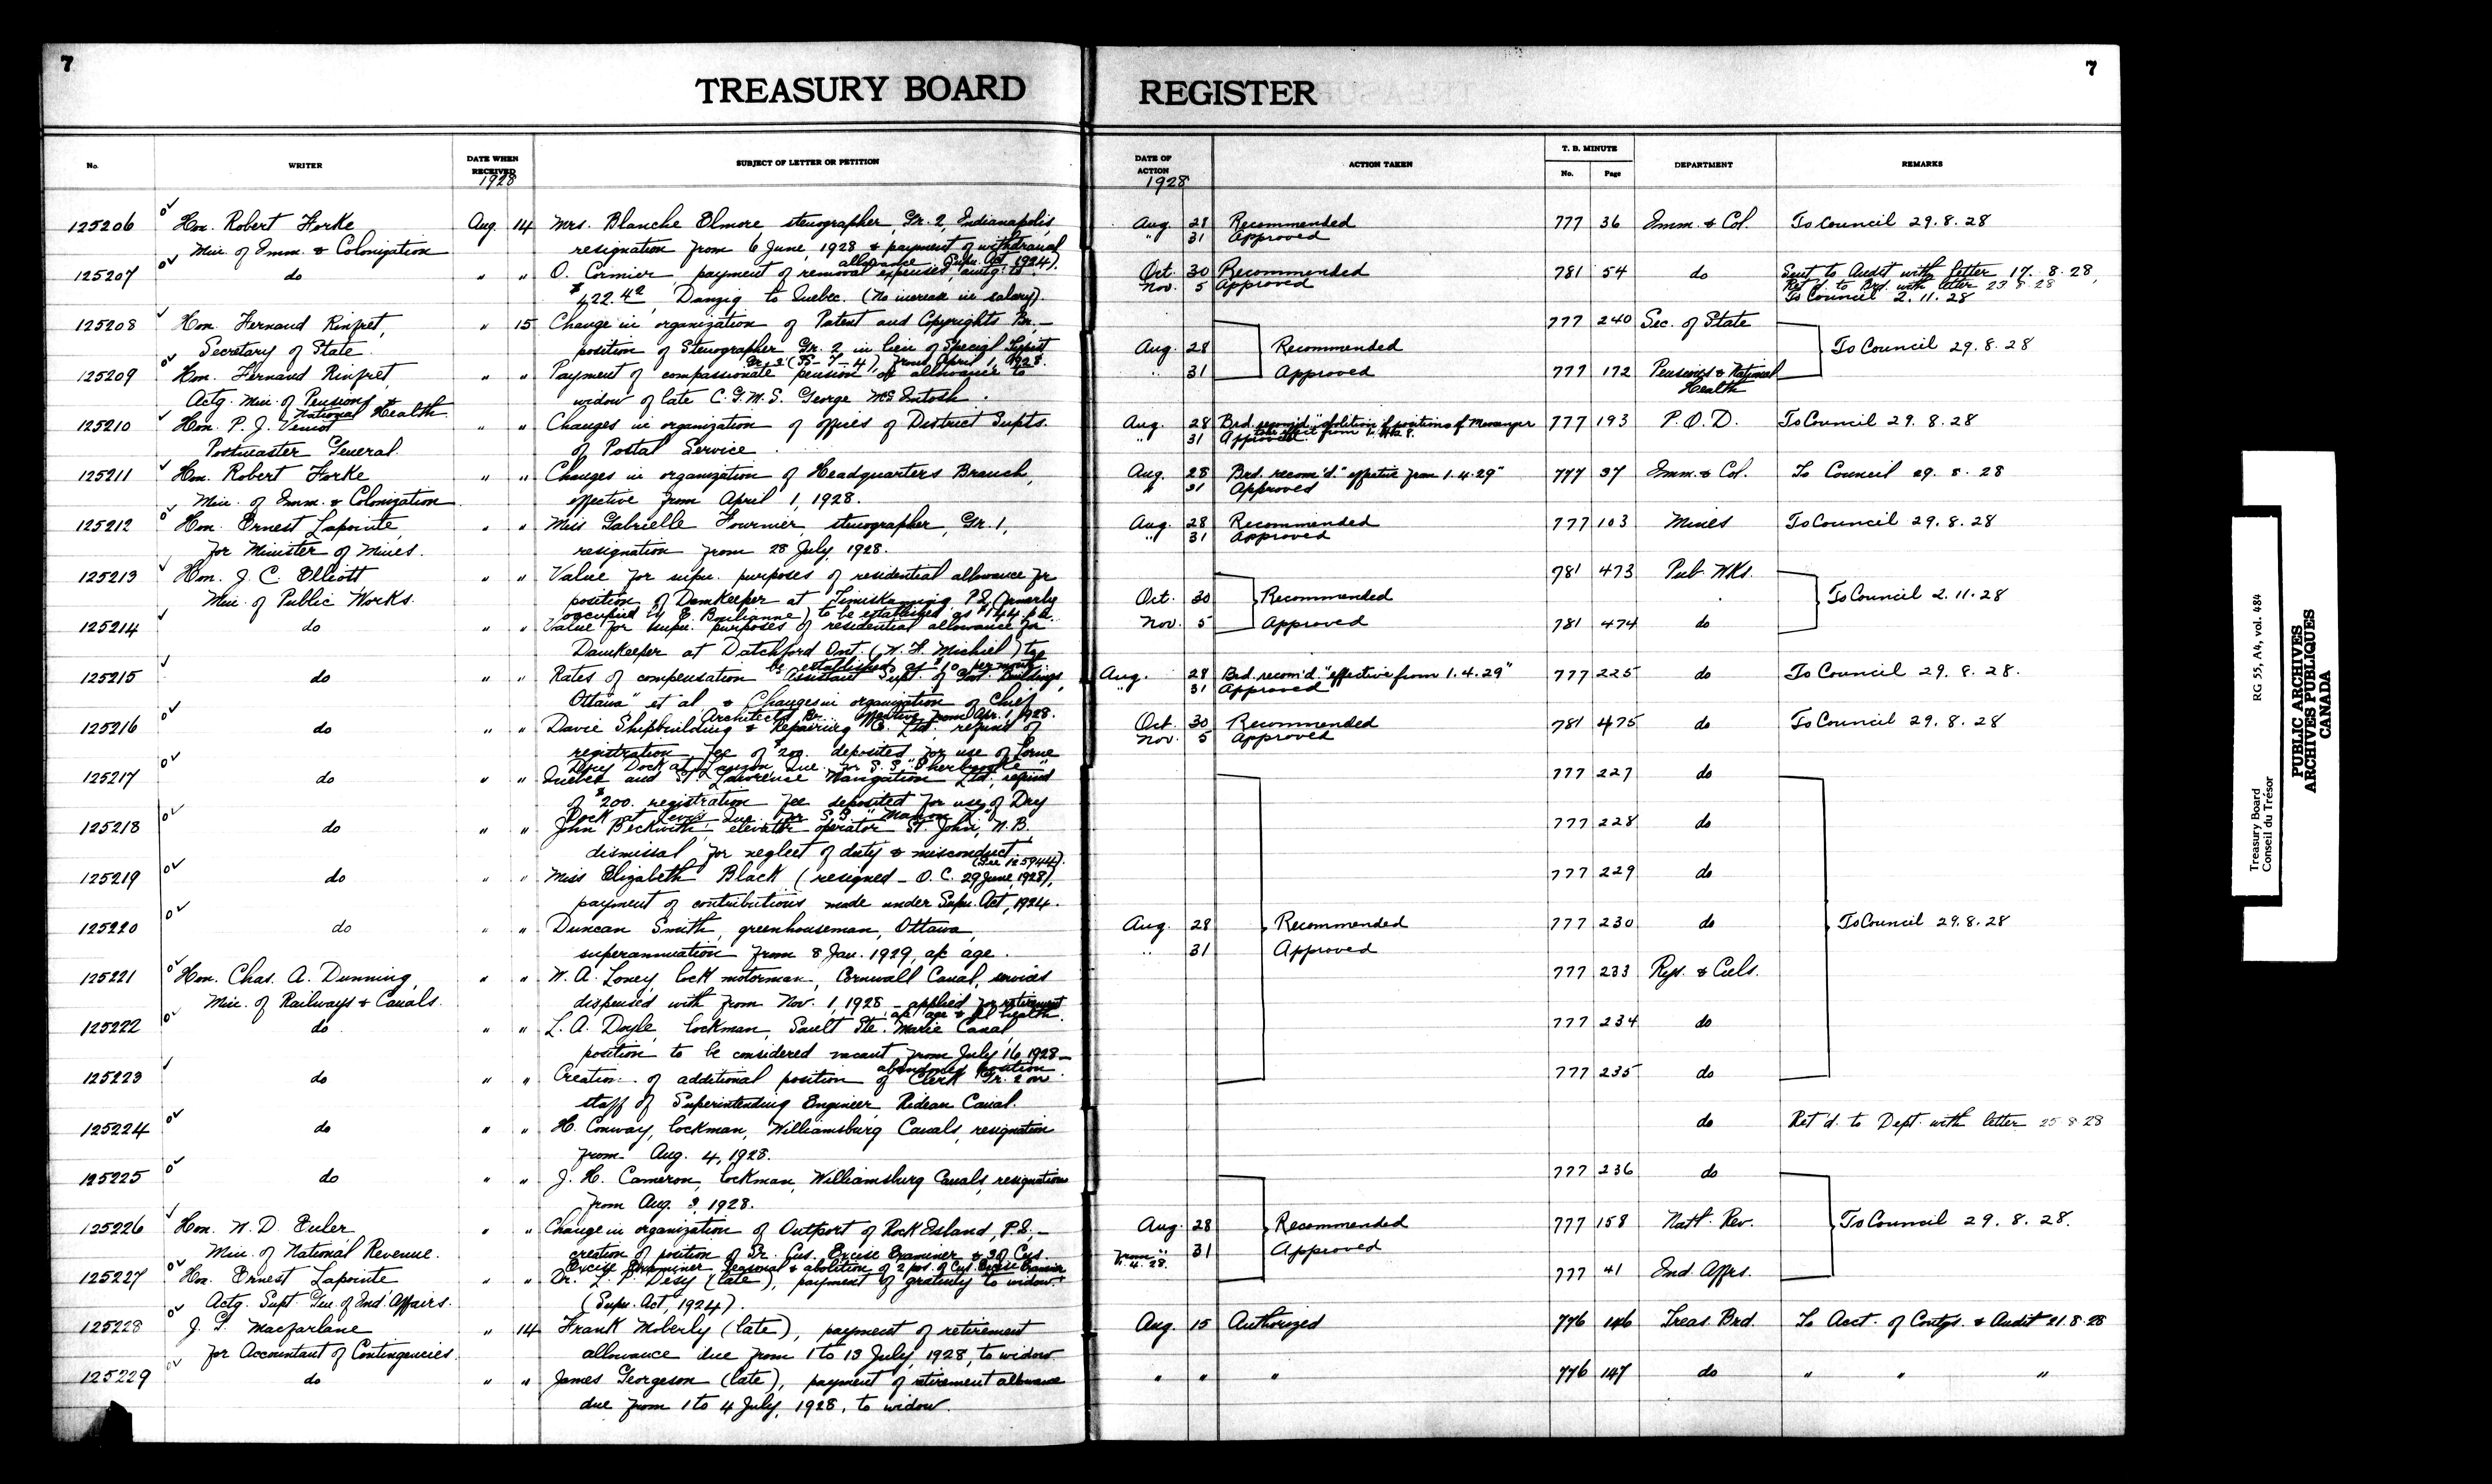 7
TREASURY BOARD
No.
WRITER
DATE WHEN RECEIVED
1928
SUBJECT OF LETTER OR PETITION
125206 Hon. Robert Forke Aug. 14 Mrs. Blanche Elmore, stenographer, Gr. 2, Indianapolis,
Min. of Imm. & Colonization resignation from 6 June, 1928 & payment of withdrawal
allowance Supn. Act, 1924).
125207 do " " O. Cormier, payment of removal expenses, amtg. to
$422.42 Danzig to Quebec. (No increase in salary).
125208 Hon. Fernand Rinfret, " 15 Change in organization of Patent and Copyrights Br.—
Secretary of State. position of Stenographer Gr. 2 in lieu of Special Typist
from April 1, 1928.
125209 Hon. Fernand Rinfret, " " Payment of compassionate pension allowance to
Actg. Min. of Pensions & widow of late C.G.M.S. George McIntosh.
National Health.
125210 Hon. P. J. Veniot " " Changes in organization of offices of District Supts.
Postmaster General. of Postal Service.
125211 Hon. Robert Forke " " Changes in organization of Headquarters Branch,
Min. of Imm. & Colonization effective from April 1, 1928.
125212 Hon. Ernest Lapointe, " " Miss Gabrielle Fournier, stenographer, Gr. 1,
for Minister of Mines. resignation from 28 July, 1928.
125213 Hon. J. C. Elliott " " Value for supn. purposes of residential allowance for
Min. of Public Works. position of Damkeeper at Timiskaming P.Q. (formerly
occupied by E. Boulianne) to be established as $144 p.a.
125214 do " " Value for supn. purposes of residential allowance for
Damkeeper at Latchford Ont. (W. F. Michiel) to
be established as $10 per month.
125215 do " " Rates of compensation "Assistant Supt. of Govt. Buildings,
Ottawa" et al & Changes in organization of Chief
Architect's Br. effective from Apr. 1, 1928.
125216 do " " Davie Shipbuilding & Repairing Co. Ltd. refund of
registration fee of $200. deposited for use of Lorne
Dry Dock at Lauzon, Que. for S.S. "Sherbrooke"
125217 do " " Quebec and St. Lawrence Navigation Ltd., refund
of $200. registration fee deposited for use of Dry
Dock at Levis, Que. for S.S. "Marion L."
125218 do " " John Beckwith, elevator operator St. John, N.B.
dismissal for neglect of duty & misconduct.
(See 125944).
125219 do " " Miss Elizabeth Black (resigned — O.C. 29 June, 1928),
payment of contributions made under Supn. Act, 1924.
125220 do " " Duncan Smith, greenhouseman, Ottawa,
superannuation from 8 Jan. 1929, ac age.
125221 Hon. Chas. A. Dunning, " " W. A. Loney, lock motorman, Cornwall Canal, services
Min. of Railways & Canals. dispensed with from Nov. 1, 1928 — applied for retirement
ac age & ill health.
125222 do " " L. A. Doyle, lockman, Sault Ste. Marie Canal,
position to be considered vacant from July 16, 1928 —
abandoned position.
125223 do " " Creation of additional position of Clerk Gr. 2 on
staff of Superintending Engineer, Rideau Canal.
125224 do " " H. Conway, lockman, Williamsburg Canals, resignation
from Aug. 4, 1928.
125225 do " " J. H. Cameron, lockman, Williamsburg Canals, resignation
from Aug. 3, 1928.
125226 Hon. W. D. Euler " " Change in organization of Outport of Rock Island, P.Q.,—
Min. of National Revenue. creation of position of Sr. Cus. Excise Examiner & 3 of Cus.
Excise Examiner Seasonal & abolition of 2 pos. of Cus. Excise Examiner
125227 Hon. Ernest Lapointe " " Dr. L. P. Desy (late), payment of gratuity to widow.
Actg. Supt. Gen. of Ind. Affairs. (Supn. Act, 1924).
125228 J. G. Macfarlane " 14 Frank Moberly (late), payment of retirement
for Accountant of Contingencies. allowance due from 1 to 13 July, 1928, to widow.
125229 do " " James Georgeson (late), payment of retirement allowance
due from 1 to 4 July, 1928, to widow.
7
REGISTER
DATE OF ACTION
1928
ACTION TAKEN
T. B. MINUTE
No.
Page
DEPARTMENT
REMARKS
Aug. 28 Recommended 777 36 Imm. & Col. To Council 29.8.28
" 31 Approved
Oct. 30 Recommended 781 54 do Sent to Audit with letter 17.8.28,
Nov. 5 Approved Ret'd. to Brd. with letter 23.8.28,
To Council 2.11.28
777 240 Sec. of State
Aug. 28 Recommended To Council 29.8.28
" 31 Approved 777 172 Pensions & National
Health
Aug. 28 Brd. recom'd. "abolition of positions of Messenger 777 193 P.O.D. To Council 29.8.28
" 31 Approved
Aug. 28 Brd. recom'd. "effective from 1.4.29" 777 37 Imm. & Col. To Council 29.8.28
" 31 Approved
Aug. 28 Recommended 777 103 Mines To Council 29.8.28
" 31 Approved
781 473 Pub. Wks.
Oct. 30 Recommended To Council 2.11.28
Nov. 5 Approved 781 474 do
Aug. 28 Brd. recom'd. "effective from 1.4.29" 777 225 do To Council 29.8.28.
" 31 Approved
Oct. 30 Recommended 781 475 do To Council 29.8.28
Nov. 5 Approved
777 227 do
777 228 do
777 229 do
Aug. 28 Recommended 777 230 do To Council 29.8.28
" 31 Approved
777 233 Rys. & Cnls.
777 234 do
777 235 do
do Ret'd. to Dept. with letter 25.8.28
777 236 do
Aug. 28 Recommended 777 158 Natl. Rev. To Council 29.8.28.
" 31 Approved
777 41 Ind. Affrs.
Aug. 15 Authorized 776 146 Treas. Brd. To Acct. of Contgs. & Audit 21.8.28
" " " 776 147 do " " "
Treasury Board
Conseil du Trésor
RG 55, A4, vol. 484
PUBLIC ARCHIVES
ARCHIVES PUBLIQUES
CANADA